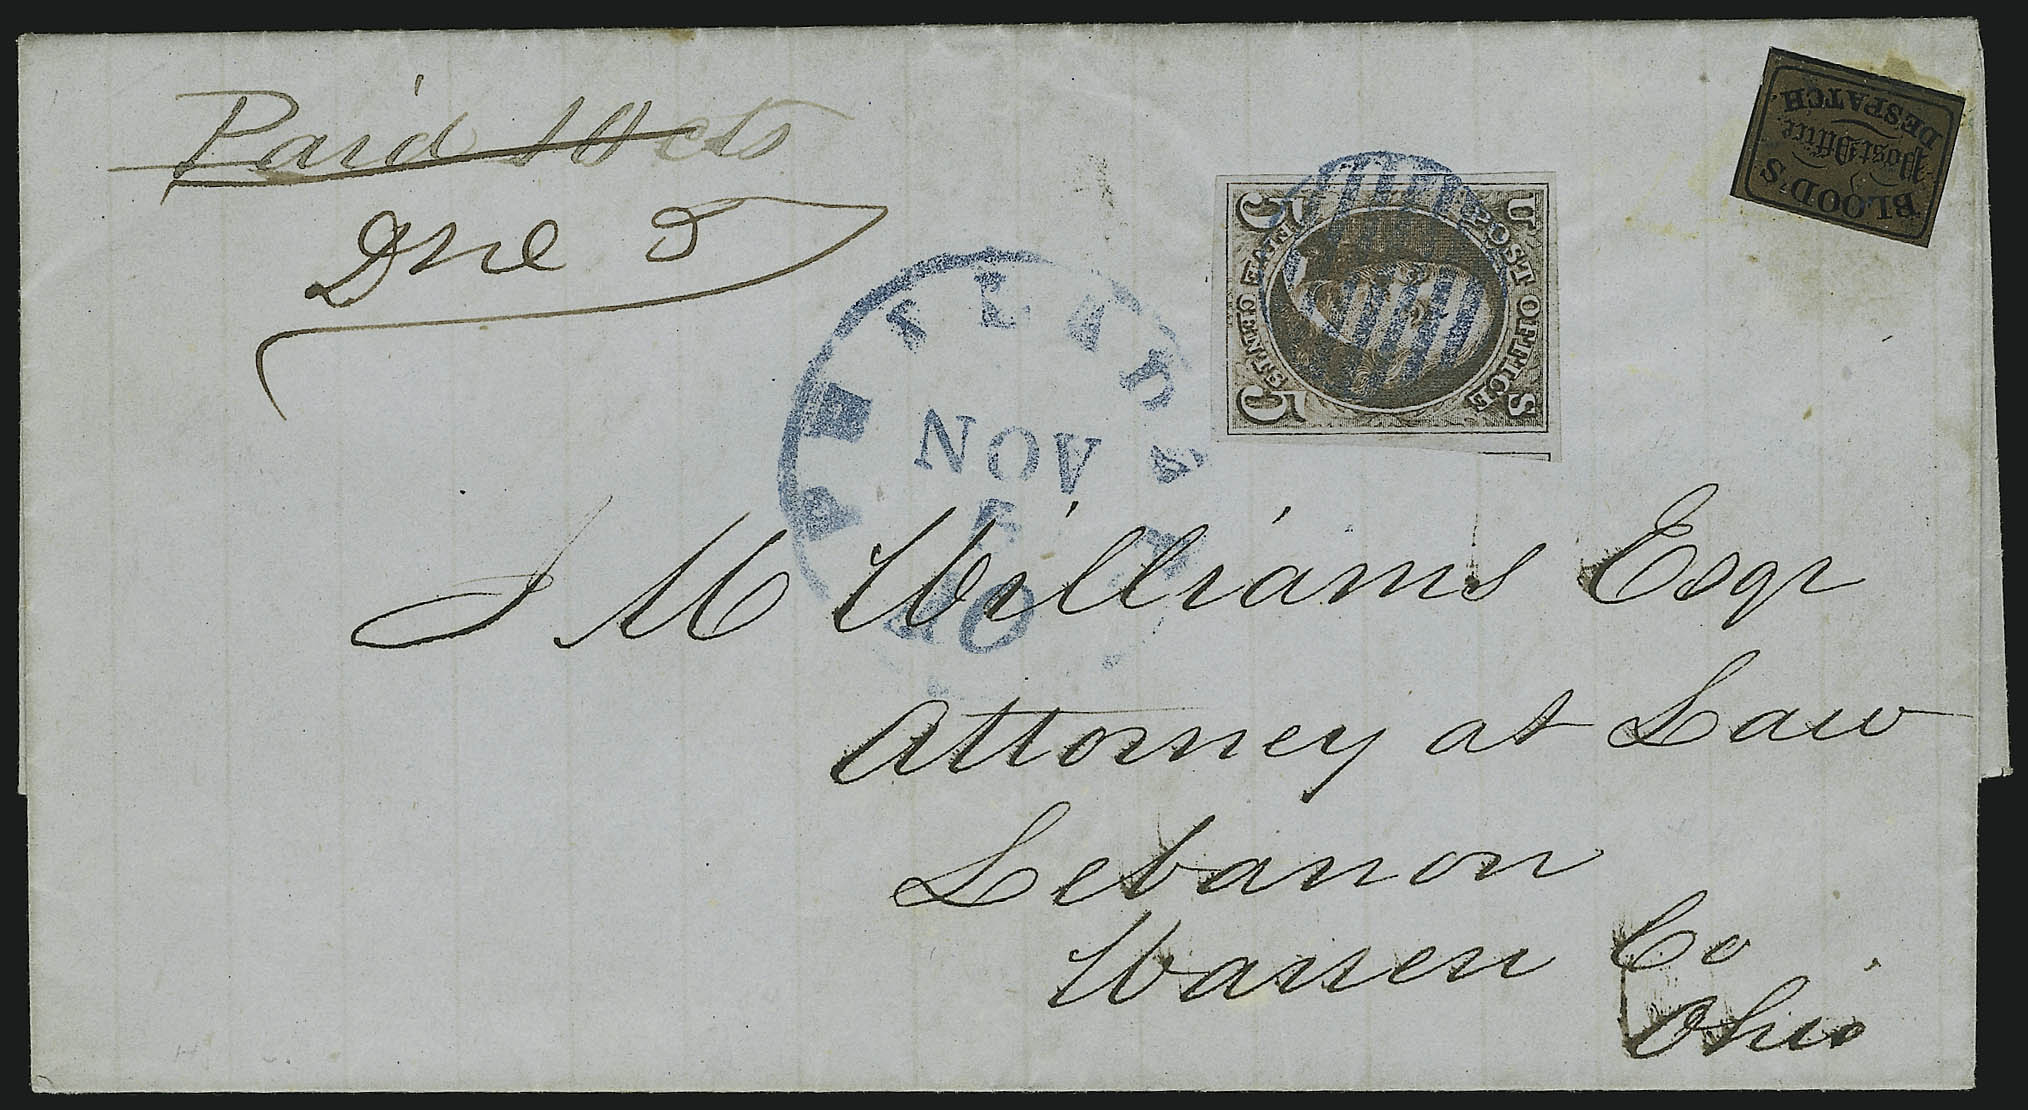 Paid 10 cts
Due 5
BLOOD'S
Post Office
DESPATCH
U POST OFFICE S
FIVE CENTS
5 5
PHILADA
NOV
5
10
J M Williams Esqr
Attorney at Law
Lebanon
Warren Co
Ohio